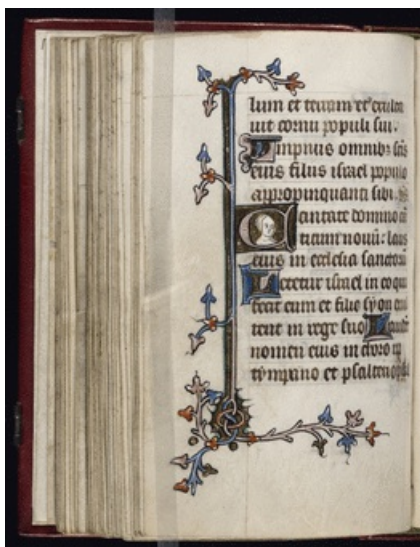 lum et terram et exalta
uit cornu populi sui.
Ympnus omnibus scis
eius filiis israel populo
appropinquanti sibi.
Cantate domino cā
ticum nouū: laus
eius in ecclesia sanctorū
Letetur israel in eo qui
fecit eum et filie syon
in rege suo Laudēt
nomen eius in choro
tympano et psalterio